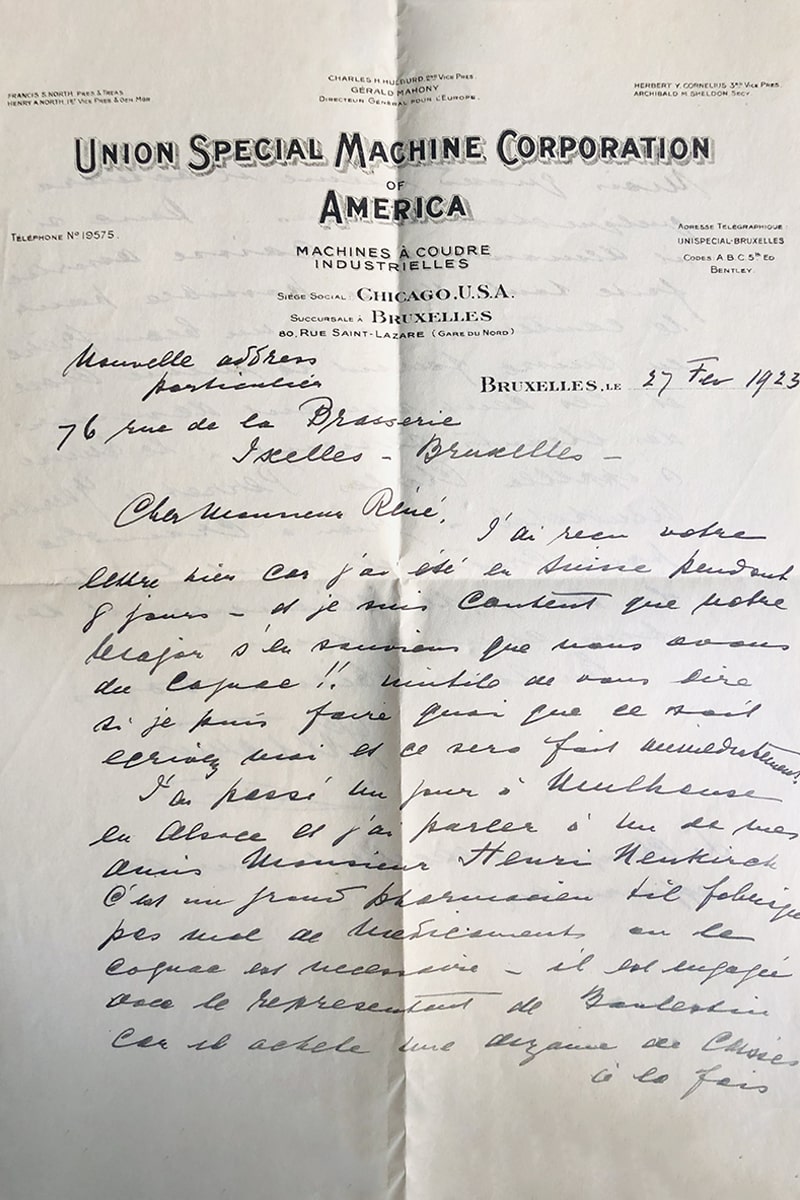 FRANCIS S. NORTH, PRES & TREAS.
HENRY A. NORTH, 1ST VICE PRES & GEN MGR
CHARLES H. HULBURD, 2ND VICE PRES.
GÉRALD MAHONY
DIRECTEUR GÉNÉRAL POUR L'EUROPE.
HERBERT Y. CORNELIUS 3RD VICE PRES.
ARCHIBALD M. SHELDON SECY
UNION SPECIAL MACHINE CORPORATION
OF
AMERICA
TÉLÉPHONE Nº 19575.
MACHINES À COUDRE
INDUSTRIELLES
ADRESSE TÉLÉGRAPHIQUE
UNISPECIAL-BRUXELLES
CODES: A.B.C. 5TH ED
BENTLEY.
SIÈGE SOCIAL: CHICAGO. U.S.A.
SUCCURSALE À BRUXELLES
80, RUE SAINT-LAZARE (GARE DU NORD)
Nouvelle address
particulier
BRUXELLES, LE 27 Fev 1923
76 rue de la Brasserie
Ixelles - Bruxelles -
Cher Monsieur Réné,
J'ai recu votre
lettre hier car j'ai été en Suisse pendant
8 jours - et je suis content que votre
Major s'en souviens que nous avons
du Cognac !! inutile de vous dire
si je puis faire quoi que ce soit
ecrivez moi et ce sera fait immediatement.
J'ai passé un jour à Mulhouse
en Alsace et j'ai parler à un de mes
amis Monsieur Henri Neukirch
C'est un grand pharmacien et il fabrique
pas mal de medicaments ou le
cognac est necessaire - il est engagé
avec le representant de
car il achete une dizaine de Caisses
à la fois